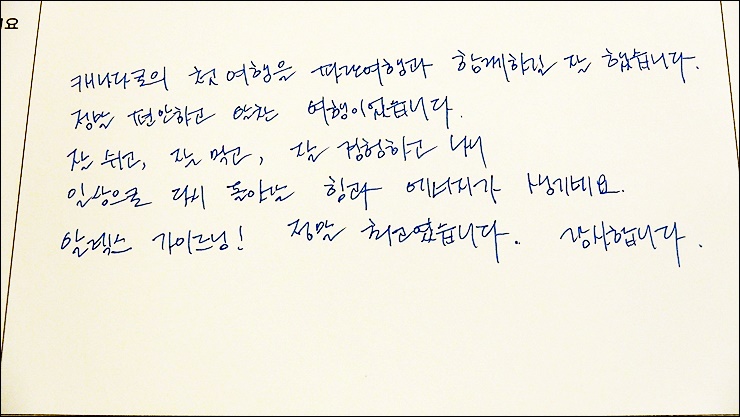 요
캐나다로의 첫 여행을 파란여행과 함께하길 잘 했습니다.
정말 편안하고 알찬 여행이었습니다.
잘 쉬고, 잘 먹고, 잘 경험하고 나니
일상으로 다시 돌아갈 힘과 에너지가 생기네요.
알렉스 가이드님! 정말 최고였습니다. 감사합니다.